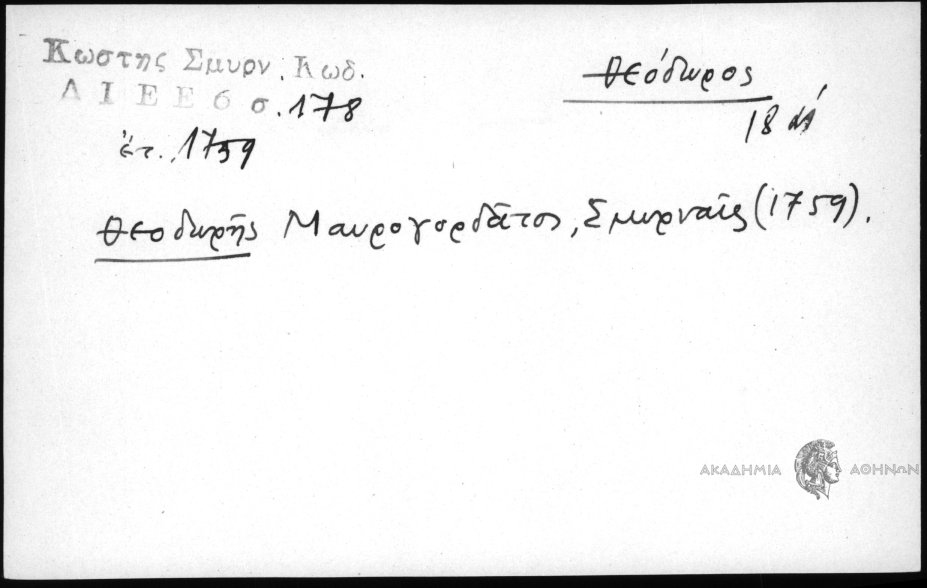 Κωστης Σμυρν. Κωδ.
ΔΙΕΕ 6 σ. 178
ἔτ. 1759
Θεόδωρος
18
Θεοδωρῆς Μαυρογορδᾶτος, Σμυρναῖος (1759).
ΑΚΑΔΗΜΙΑ ΑΘΗΝΩΝ